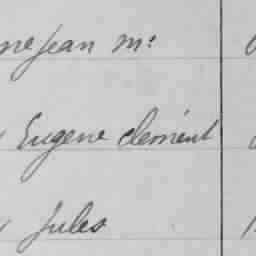 Jean M.
Eugene Clément
Jules